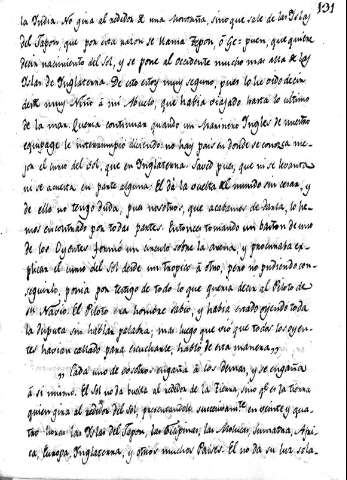 131
la India. No gira al rededor de una Montaña, sino que sale de las Islas
del Japon, que por esa razon se llama Jepon, ô Ge-puen, que quiere
decir nacimiento del Sol, y se pone al Occidente mucho mas allá de las
Islas de Inglaterra. De esto estoy muy seguro, pues lo he oido decir
desde muy Niño â mi Abuelo, que habia viajado hasta lo ultimo
de la mar. Queria continuar quando un Marinero Ingles de nuestro
equipage le interrumpió diciendo: no hay pais en donde se conozca me-
jor el curso del Sol, que en Inglaterra. Sabed pues, que ni se levanta
ni se acuesta en parte alguna. El dá la vuelta al mundo sin cesar, y
de ello no tengo duda, pues nosotros, que acabamos de darla, lo he-
mos encontrado por todas partes. Entonces tomando un baston de uno
de los Oyentes formó un circulo sobre la arena, y procuraba ex-
plicar el curso del Sol desde un tropico â otro, pero no pudiendo con-
seguirlo, ponia por testigo de todo lo que queria decir al Piloto de
su Navio. El Piloto era hombre sabio, y habia estado oyendo toda
la disputa sin hablar palabra, mas luego que vió que todos los oyen-
tes habian callado para escucharle, habló de esta manera,,
,, Cada uno de vosotros engaña â los demas, y se engaña
â si mismo. El Sol no da buelta al rededor de la tierra, sino qᵉ es la tierra
quien gira al rededor del Sol, presentandole succesivamᵗᵉ en veinte y qua-
tro horas las Islas del Japon, las Filipinas, las Molucas, Sumatra, Afri-
ca, Europa, Inglaterra, y otros muchos Paises. El no da su luz sola-